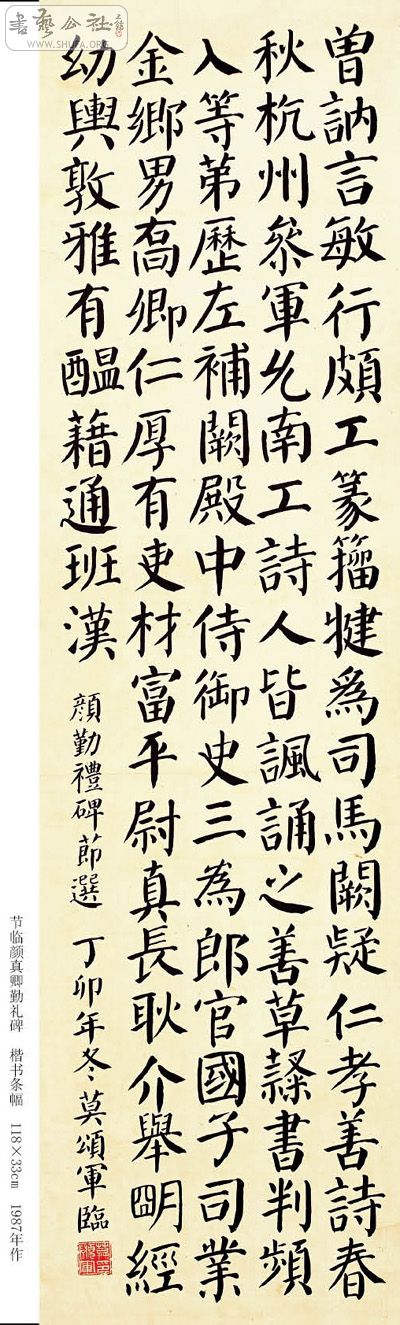 書藝公社
WWW.SHUFA.ORG
曽訥言敏行頗工篆籀犍爲司馬闕疑仁孝善詩春
秋杭州叅軍允南工詩人皆諷誦之善草隸書判頻
入等第歷左補闕殿中侍御史三為郎官國子司業
金鄉男喬卿仁厚有吏材富平尉真長耿介舉明經
幼輿敦雅有醖藉通班漢 顔勤禮碑節選 丁卯年冬莫頌軍臨
节临颜真卿勤礼碑 楷书条幅 118×33cm 1987年作